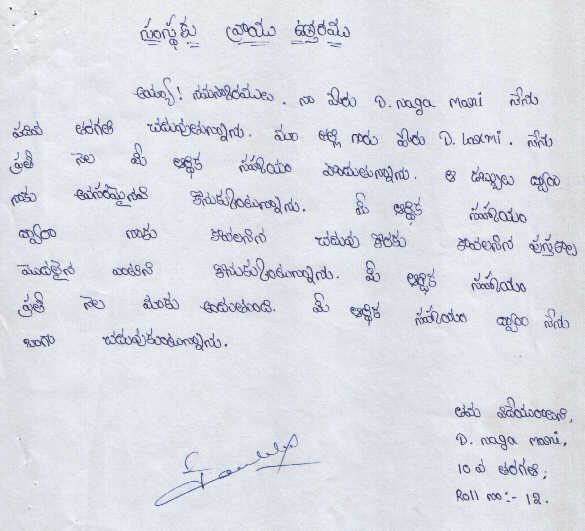 సంస్థకు వ్రాయు ఉత్తరము
అయ్యా! నమస్కారములు. నా పేరు D. Naga Mani నేను
పదవ తరగతి చదువుతున్నాను. మా తల్లి గారు పేరు D. Laxmi. నేను
ప్రతి నెల మీ ఆర్థిక సహాయం పొందుతున్నాను. ఆ డబ్బులు ద్వారా
నాకు అవసరమైనవి కొనుకుంటున్నాను. మీ ఆర్థిక సహాయం
ద్వారా నాకు కావలసిన చదువు కొరకు కావలసిన పుస్తకాలు
మొదలైన వాటిని కొనుకుంటున్నాను. మీ ఆర్థిక సహాయం
ప్రతి నెల మాకు అందుతుంది. మీ ఆర్థిక సహాయం ద్వారా నేను
బాగా చదువుకుంటున్నాను.
తమ విదేయురాలు,
D. naga mani,
10 వ తరగతి,
Roll no:- 12.